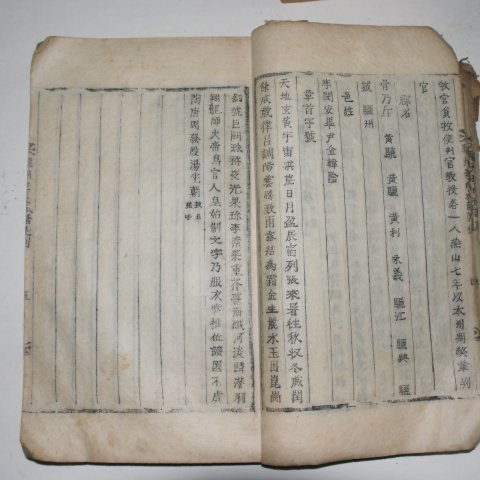 牧官員牧使判官教授各一人燕山七年以本州開築革判
官
郡名
骨乃斤 黃驍 黃驪 黃利 永義 驪江 驪興 驪
城 驪州
邑姓
李閔安畢尹金韓陰
章首字號
天地玄黃宇宙洪荒日月盈昃辰宿列張來暑往秋收冬藏閏
餘成歲律呂調陽雲騰致雨露結爲霜金生麗水玉出崑崗
劍號巨闕珠稱夜光果珍李柰菜重芥薑海鹹河淡鱗潛羽
翔龍師火帝鳥官人皇始制文字乃服衣裳推位讓國有虞
陶唐周發殷湯坐朝